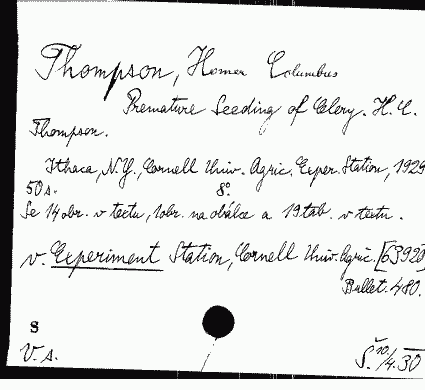 Thompson, Homer Columbus
Premature Seeding of Celery. H. C.
Thompson.
Ithaca, N.Y., Cornell Univ. Agric. Exper. Station, 1929
50 s. 8°.
Se 14 obr. v textu, 1 obr. na obálce a 19 tab. v textu.
v. Experiment Station, Cornell Univ. Agric. [63920]
Bullet. 480.
8
V. s.
Š. 10/4. 30